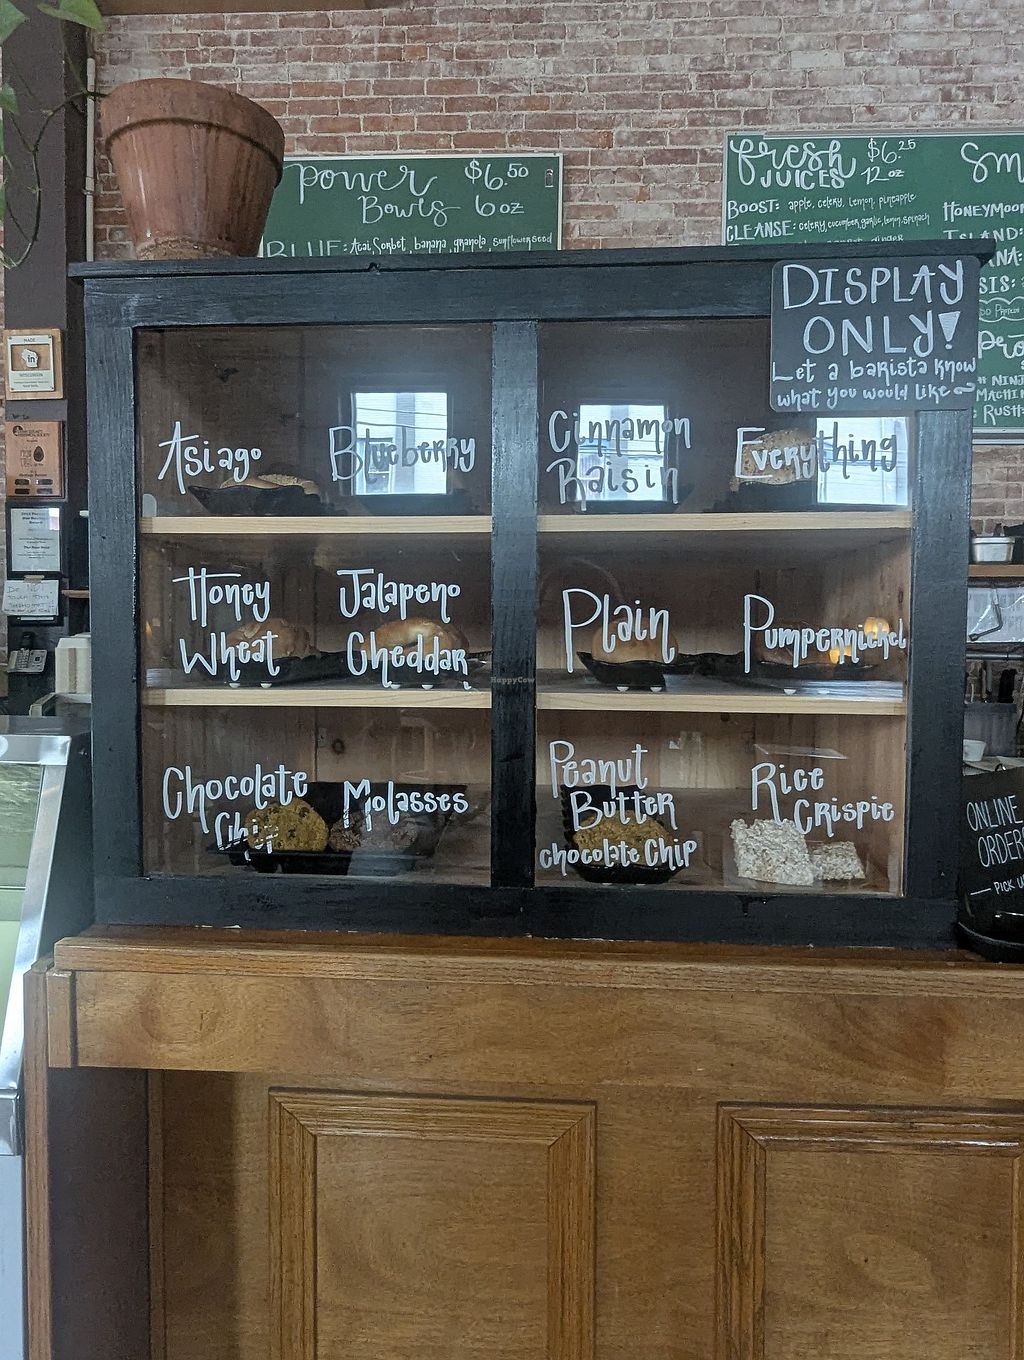 Power $6.50
Bowls 6 oz
BLUE: Acai Sorbet, banana, granola, sunflower seed
fresh $6.25
JUICES 12 oz
BOOST: apple, celery, lemon, pineapple
CLEANSE: celery, cucumber, garlic, lemon, spinach
ginger
DISPLAY
ONLY!
Let a barista know
what you would like
Asiago
Blueberry
Cinnamon
Raisin
Everything
Honey
Wheat
Jalapeno
Cheddar
Plain
Pumpernickel
HappyCow
Chocolate
Chip
Molasses
Peanut
Butter
chocolate Chip
Rice
Crispie
ONLINE
ORDER
PICK U
MADE
in
WISCONSIN